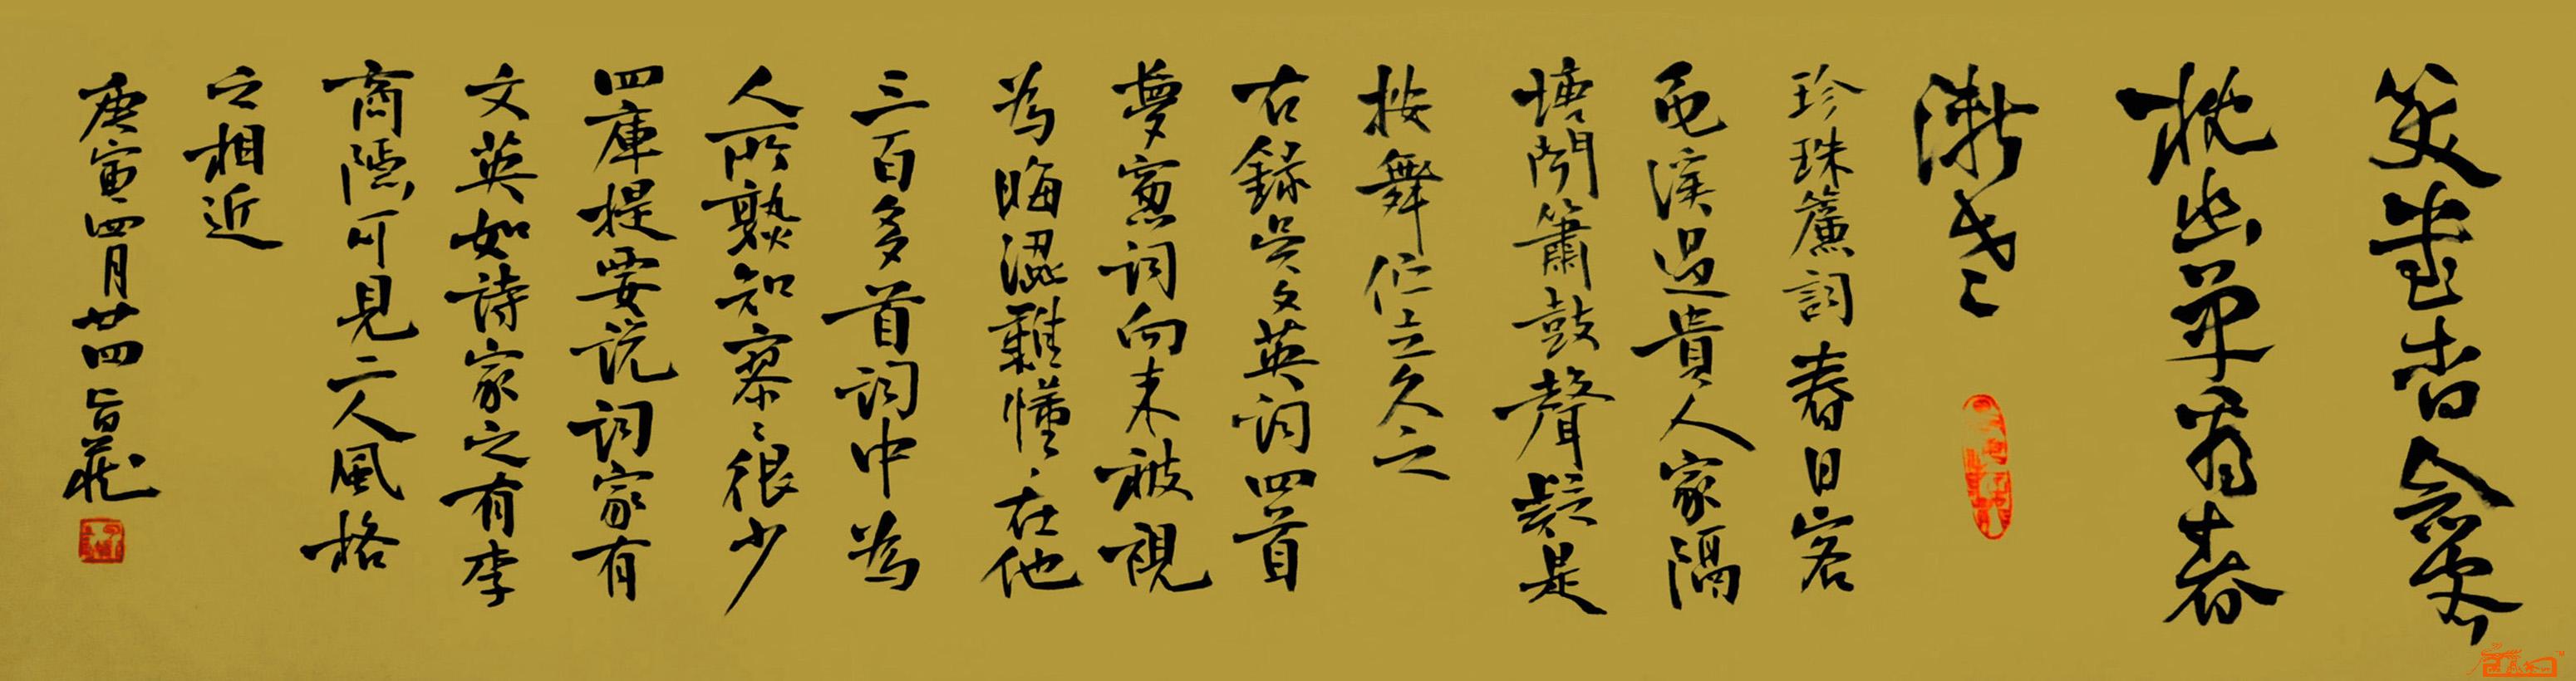 笑書杳念客
枕幽單看春
漸老
珍珠簾詞 春日客
黾溪過貴人家隔
墻聞簫鼓聲疑是
按舞伫立久之
右錄吳文英詞四首
夢窻詞向来被視
為晦澀難懂在他
三百多首詞中為
人所熟知寥々很少
四庫提要说詞家有
文英如詩家之有李
商隱可見二人風格
之相近
庚寅四月廿四